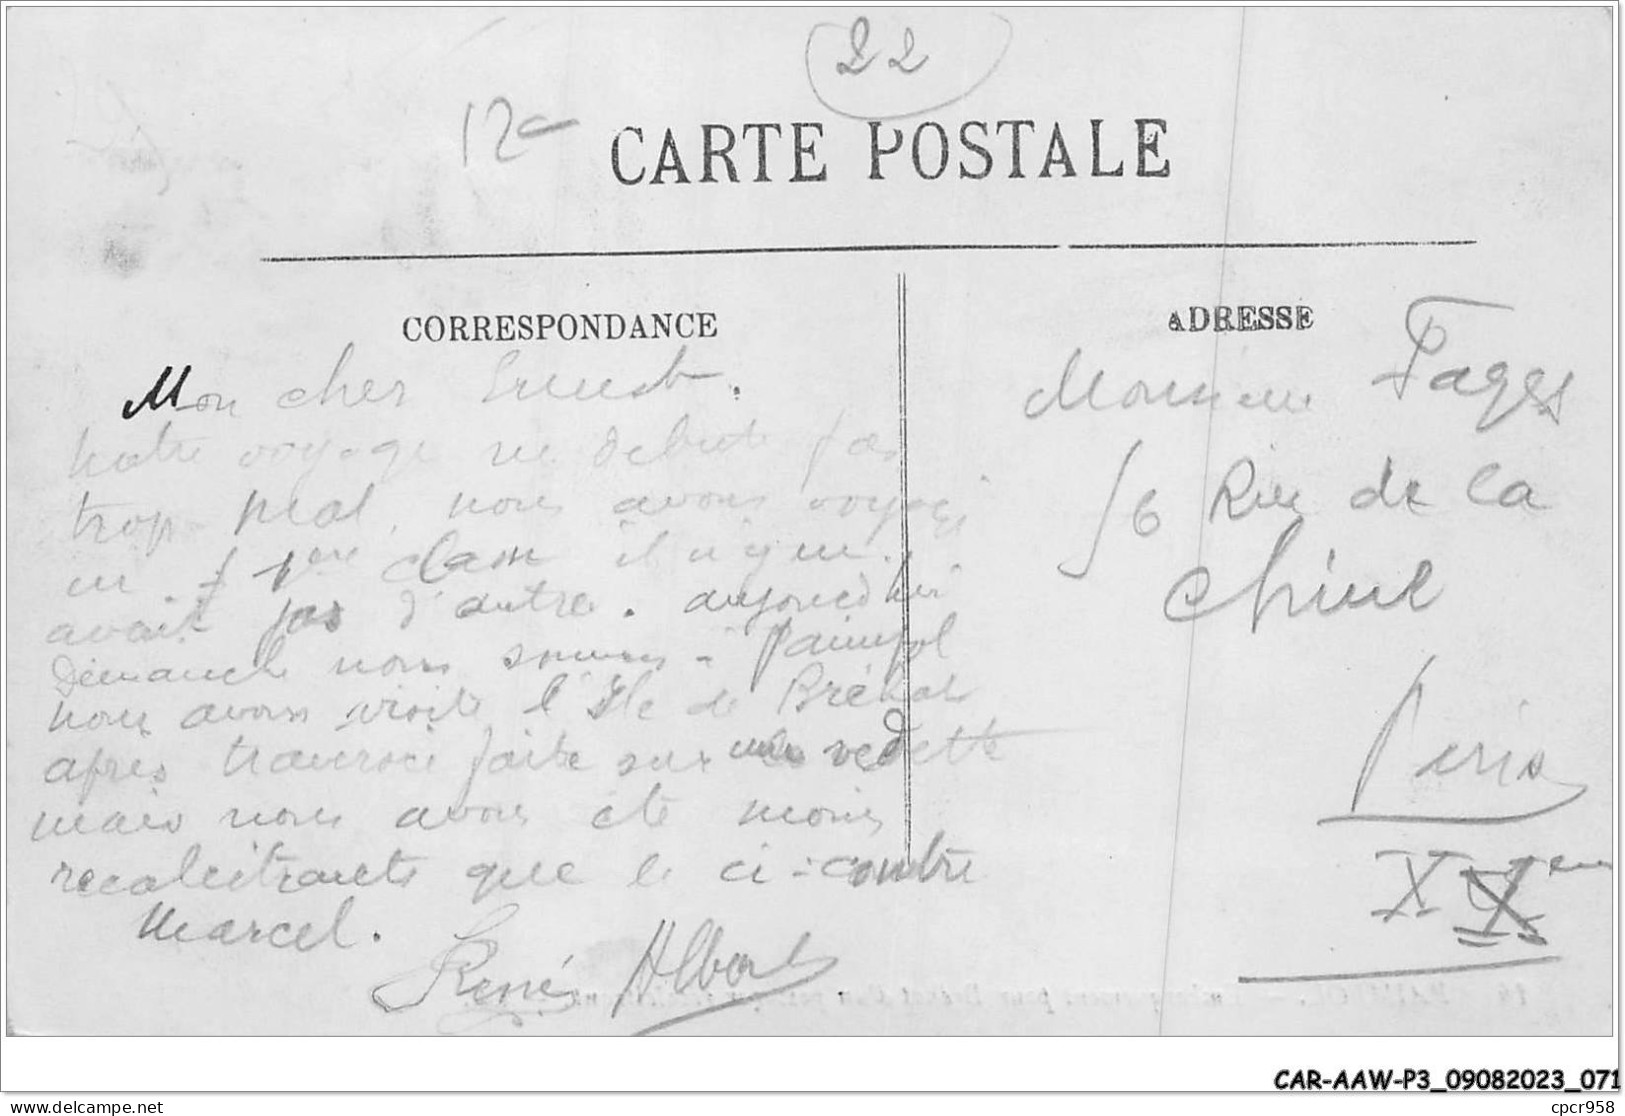 22
12c
CARTE POSTALE
CORRESPONDANCE
Mon cher Ernest.
Notre voyage ne debute pas
trop mal, nous avons voyagé
en 1ere classe il n'y en
avait pas d'autre. aujourd'hui
dimanche nous sommes à Paimpol
nous avons visité l'Ile de Bréhat
après traversée faite sur une vedette
mais nous avons été moins
recalcitrants que le ci-contre
Marcel.
René Albert
ADRESSE
Monsieur Fages
16 Rue de la
Chine
Paris
CAR-AAW-P3_09082023_071
www.delcampe.net
cpcr958